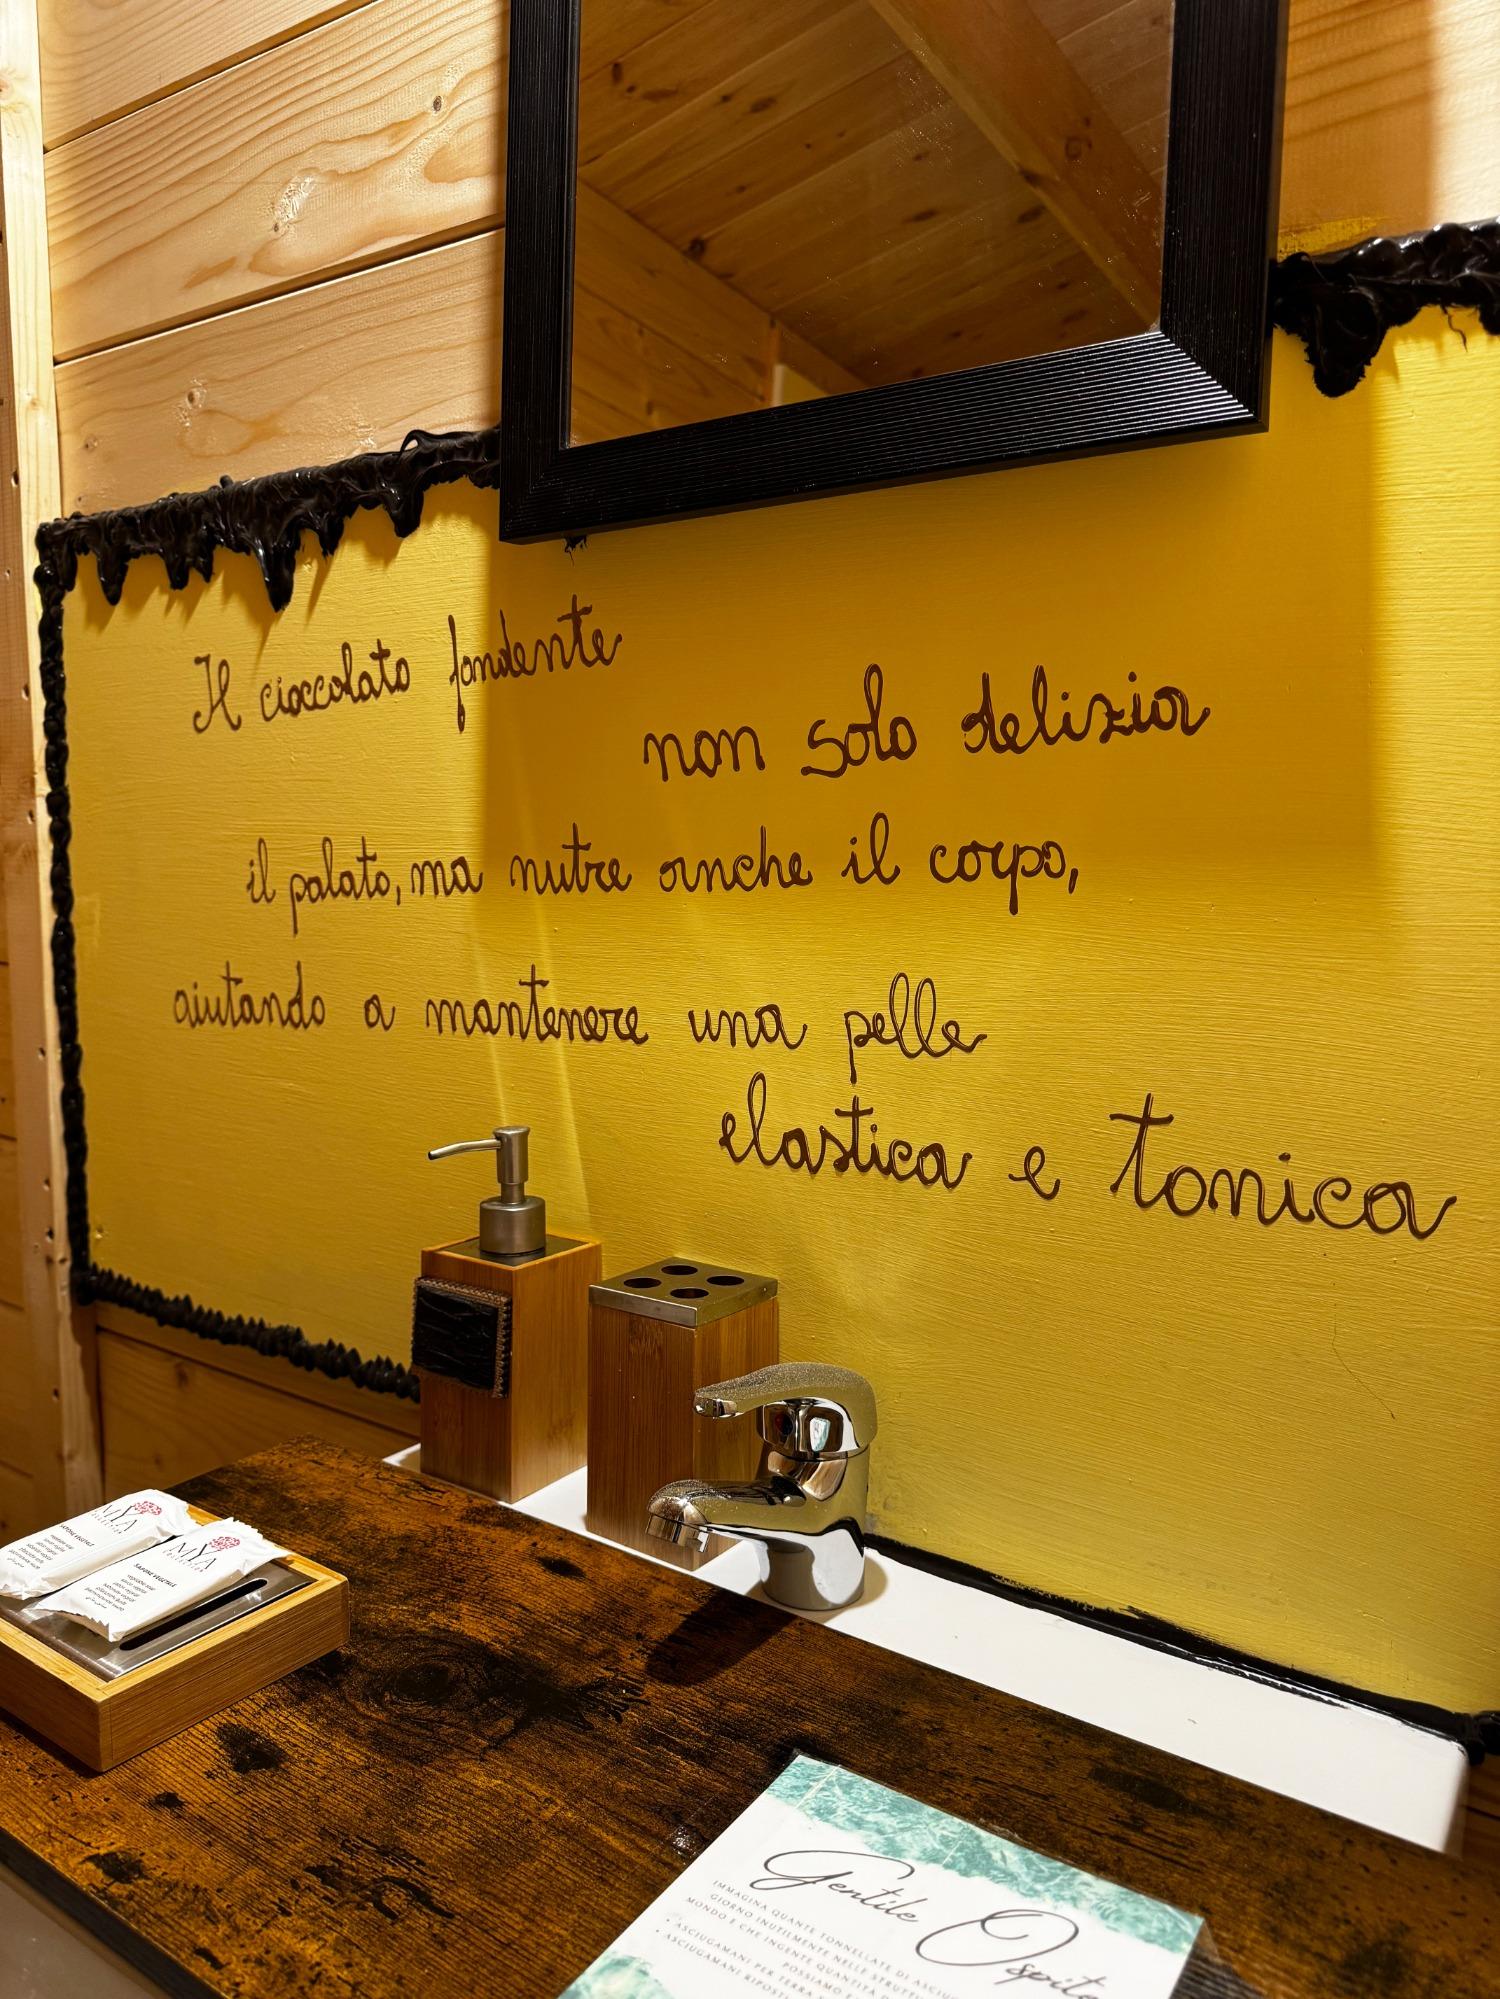 Il cioccolato fondente
non solo delizia
il palato, ma nutre anche il corpo,
aiutando a mantenere una pelle
elastica e tonica
MYA
COLLECTION
SAPONE VEGETALE
MYA
COLLECTION
SAPONE VEGETALE
vegetable soap
Gentile Ospite
IMMAGINA QUANTE TONNELLATE DI
GIORNO INUTILMENTE NELLE
MONDO E CHE INGENTE QUANTITÀ
POSSIAMO
• ASCIUGAMANI PER TERRA
• ASCIUGAMANI